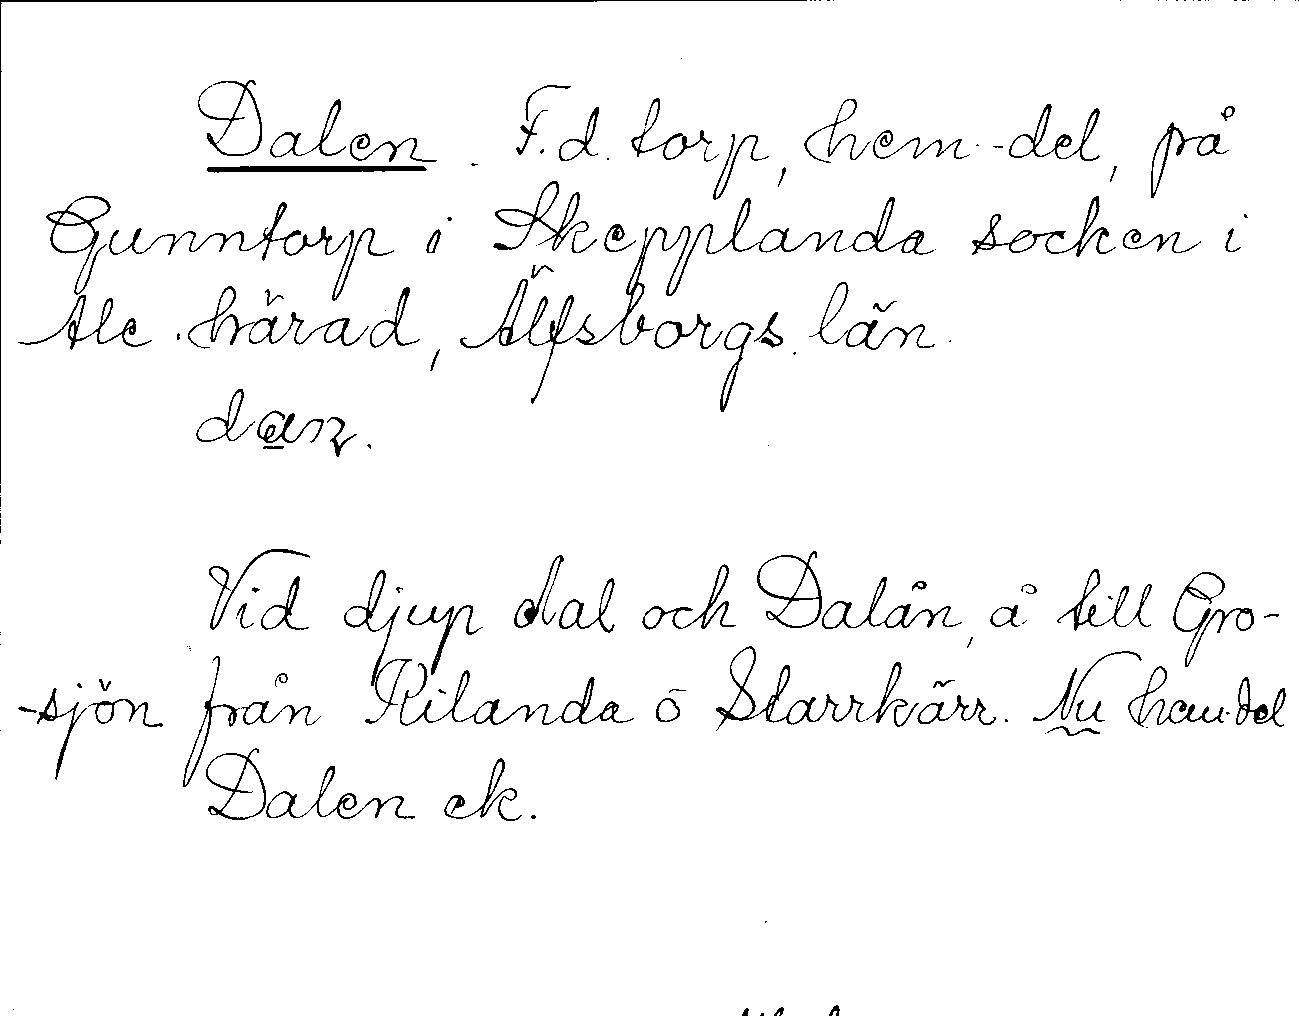 Dalen. F.d. torp, hem.-del, på
Gunntorp i Skepplanda socken i
Ale härad, Älfsborgs län.
Vid djup dal och Dalån, å till Gro-
-sjön från Kilanda o Starrkärr. Nu
Dalen ek.